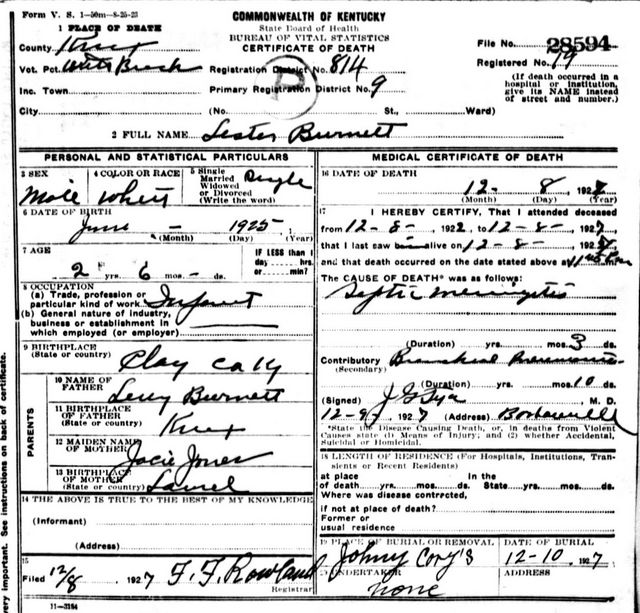 Form V. S. 1-50m-8-25-23
COMMONWEALTH OF KENTUCKY
State Board of Health
BUREAU OF VITAL STATISTICS
CERTIFICATE OF DEATH
1 PLACE OF DEATH
County Knox
Vot. Pct.
Inc. Town
City
Registration District No. 814
Primary Registration District No. 9
(No. St., Ward)
File No. 28594
Registered No. 79
(If death occurred in a
hospital or institution,
give its NAME instead
of street and number.)
2 FULL NAME Lester Burnett
PERSONAL AND STATISTICAL PARTICULARS
3 SEX
Male
4 COLOR OR RACE
White
5 Single
Married
Widowed
or Divorced
(Write the word)
Single
6 DATE OF BIRTH
June - 1925
(Month) (Day) (Year)
7 AGE
2 yrs. 6 mos. - ds.
IF LESS than 1
day hrs.
or min.?
8 OCCUPATION
(a) Trade, profession or
particular kind of work Infant
(b) General nature of industry,
business or establishment in
which employed (or employer)
9 BIRTHPLACE
(State or country)
Clay Ca Ky
PARENTS
10 NAME OF
FATHER
Burnett
11 BIRTHPLACE
OF FATHER
(State or country)
Knox
12 MAIDEN NAME
OF MOTHER
Jones
13 BIRTHPLACE
OF MOTHER
(State or country)
Laurel
14 THE ABOVE IS TRUE TO THE BEST OF MY KNOWLEDGE
(Informant)
(Address)
15
Filed 12/8 1927 F. F. Rowland
Registrar
11-3184
MEDICAL CERTIFICATE OF DEATH
16 DATE OF DEATH
12 - 8, 1927
(Month) (Day) (Year)
17 I HEREBY CERTIFY, That I attended deceased
from 12-8-, 1927, to 12-8-, 1927,
that I last saw alive on 12-8-, 1927,
and that death occurred on the date stated above at
The CAUSE OF DEATH* was as follows:
Septic Meningitis
(Duration) yrs. mos. 3 ds.
Contributory Bronchial Pneumonia
(Secondary)
(Duration) yrs. mos. 10 ds.
(Signed) J G Tye, M. D.
12-9, 1927 (Address)
*State the Disease Causing Death, or, in deaths from Violent
Causes state (1) Means of Injury; and (2) whether Accidental,
Suicidal or Homicidal.
18 LENGTH OF RESIDENCE (For Hospitals, Institutions, Tran-
sients or Recent Residents)
at place In the
of death yrs. mos. ds. State yrs. mos. ds.
Where was disease contrcted,
if not at place of death?
Former or
usual residence
19 PLACE OF BURIAL OR REMOVAL
Johny Cory's
DATE OF BURIAL
12-10-, 1927
20 UNDERTAKER
none
ADDRESS
very important. See instructions on back of certificate.